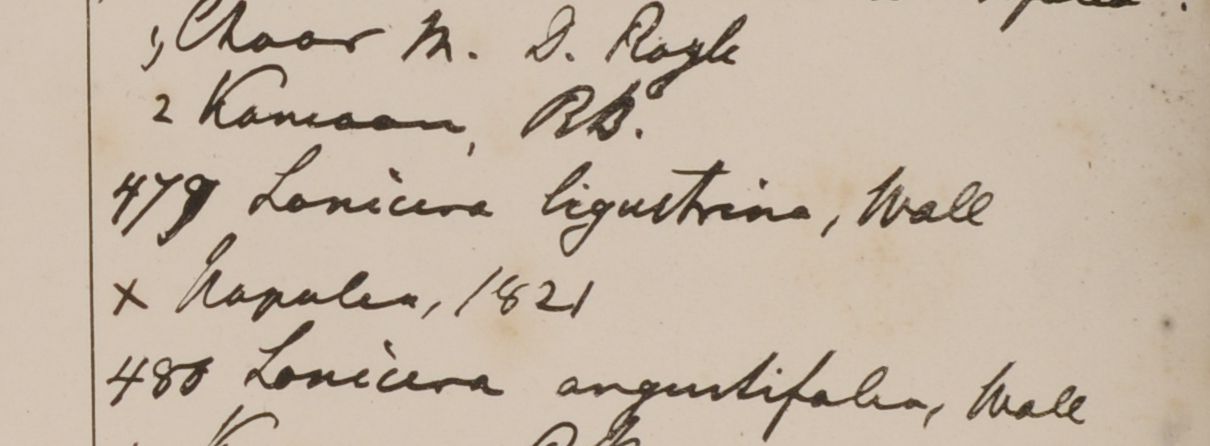 , Choor M. D. Royle
2 Kamaon, RB.
479 Lonicera ligustrina, Wall
x Napalia, 1821
480 Lonicera angustifolia, Wall